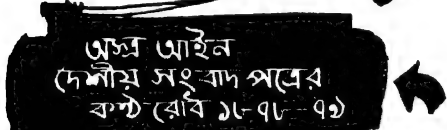 অস্ত্র আইন
দেশীয় সংবাদ পত্রের
কণ্ঠ রোধ ১৮৭৮-৭৯